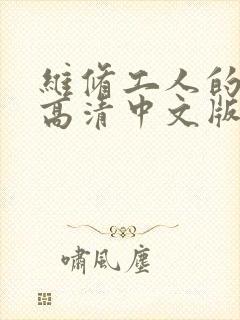 維脩工人的
高清中文版
嘯風塵